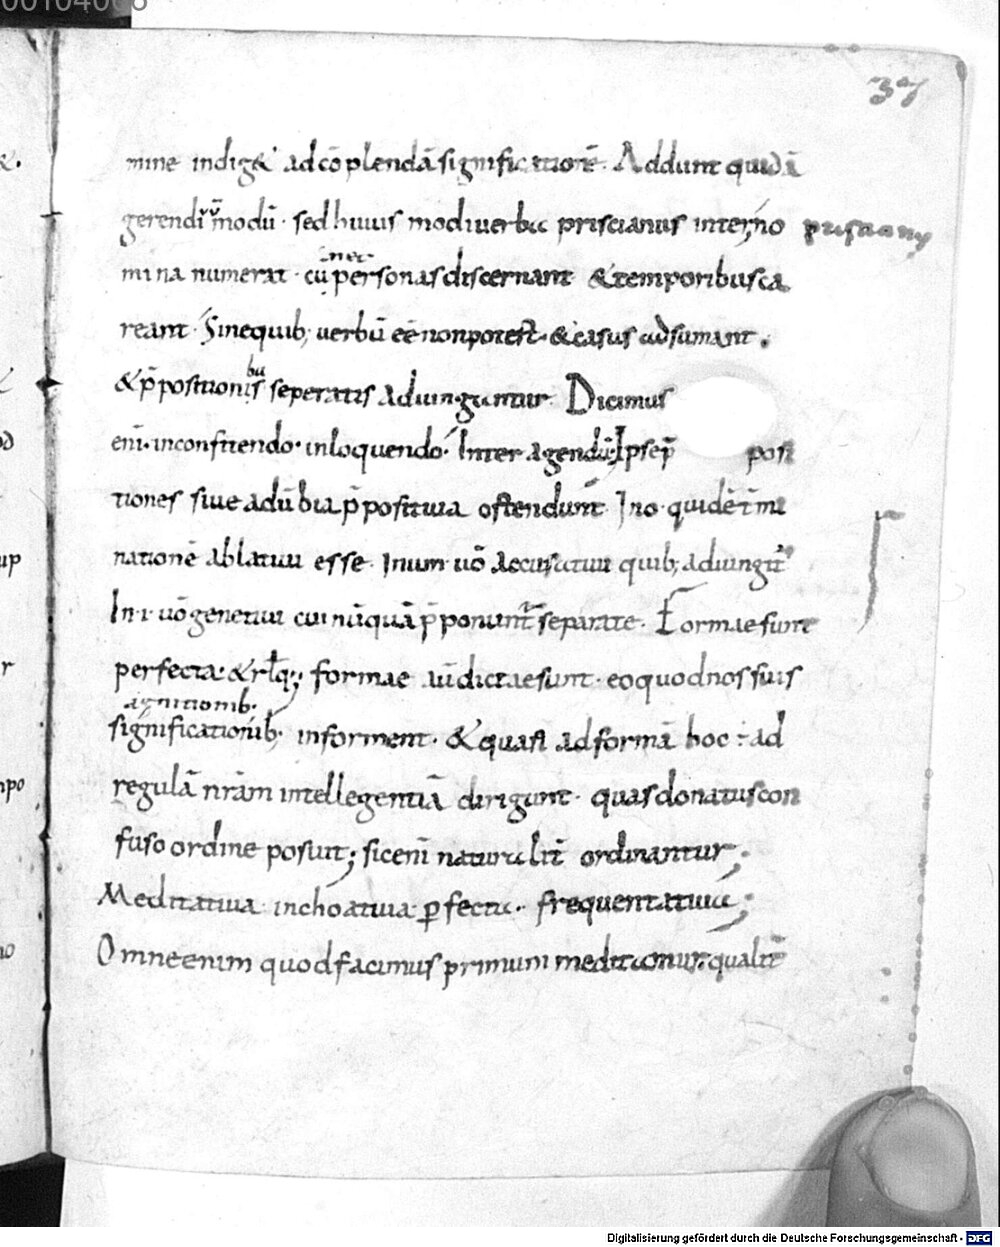 00104066
37
mine indig& adcōplendā significationē. Addunt quidā
gerendi ū modū · sed huius modi uerba priscianus inter no priscianus
mina numerat · cū nec personas discernant & temporibus ca
reant · Sine quib; uerbū eē non potest · & casus adsumant .
& p̄positionibus seperatis adiunguntur Dicimus
eni · inconfitendo · inloquendo · Inter agendū · Ipse p̄ posi
tiones siue aduerbia p̄positiua ostendunt Ino · quidē t̄mi
nationē ablatiui esse · Inum uō accusatiui quib; adiungit̄
In · i · uō genetiui cui nūquā p̄ponunt̄ separate · Formae sunt
perfecta · & rlq; formae aū dictae sunt · eo quod nos suis
agnitionib.
significationib; informent · & quasi ad formā hoc ÷ ad
regulā nr̄am intellegentiā dirigunt · quas donatus con
fuso ordine posuit; sic eni naturalit̄ ordinantur;
Meditatiua · inchoatiua · ꝑfecta · frequentatiua;
Omne enim quod facimus primum meditamur qualit̄
Digitalisierung gefördert durch die Deutsche Forschungsgemeinschaft - DFG